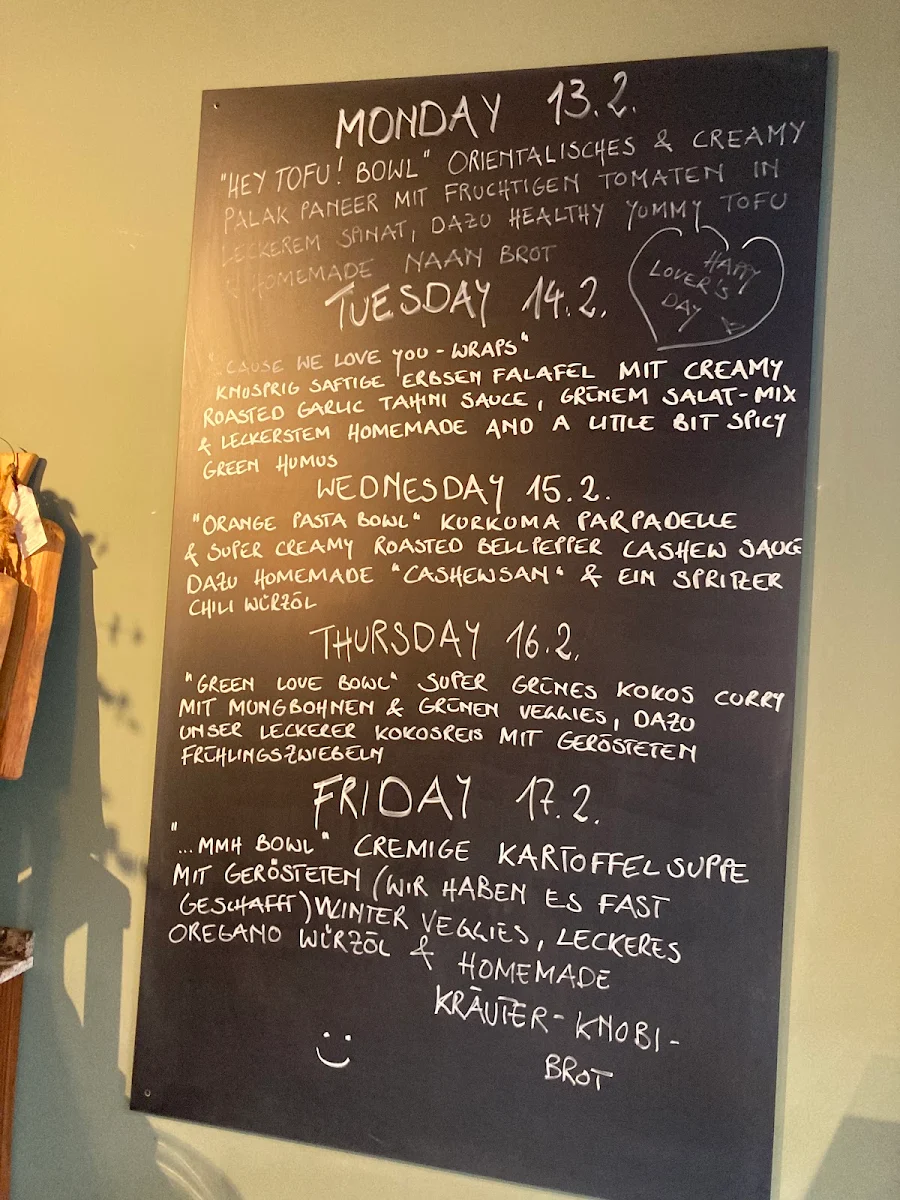 MONDAY 13.2.
"HEY TOFU! BOWL" ORIENTALISCHES & CREAMY
PALAK PANEER MIT FRUCHTIGEN TOMATEN IN
LECKEREM SPINAT, DAZU HEALTHY YUMMY TOFU
& HOMEMADE NAAN BROT
HAPPY
LOVER'S
DAY
TUESDAY 14.2.
"CAUSE WE LOVE YOU - WRAPS"
KNUSPRIG SAFTIGE ERBSEN FALAFEL MIT CREAMY
ROASTED GARLIC TAHINI SAUCE, GRÜNEM SALAT-MIX
& LECKERSTEM HOMEMADE AND A LITTLE BIT SPICY
GREEN HUMUS
WEDNESDAY 15.2.
"ORANGE PASTA BOWL" KURKUMA PARPADELLE
& SUPER CREAMY ROASTED BELLPEPPER CASHEW SAUCE
DAZU HOMEMADE "CASHEWSAN" & EIN SPRITZER
CHILI WÜRZÖL
THURSDAY 16.2.
"GREEN LOVE BOWL" SUPER GRÜNES KOKOS CURRY
MIT MUNGBOHNEN & GRÜNEN VEGGIES, DAZU
UNSER LECKERER KOKOSREIS MIT GERÖSTETEN
FRÜHLINGSZWIEBELN
FRIDAY 17.2.
"...MMH BOWL" CREMIGE KARTOFFELSUPPE
MIT GERÖSTETEN (WIR HABEN ES FAST
GESCHAFFT) WINTER VEGGIES, LECKERES
OREGANO WÜRZÖL & HOMEMADE
KRÄUTER-KNOBI-
BROT